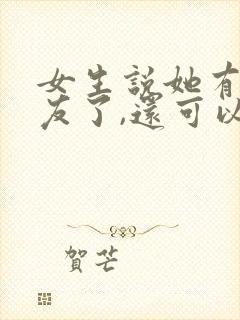 女生說她有
友了,還可以
賀芒